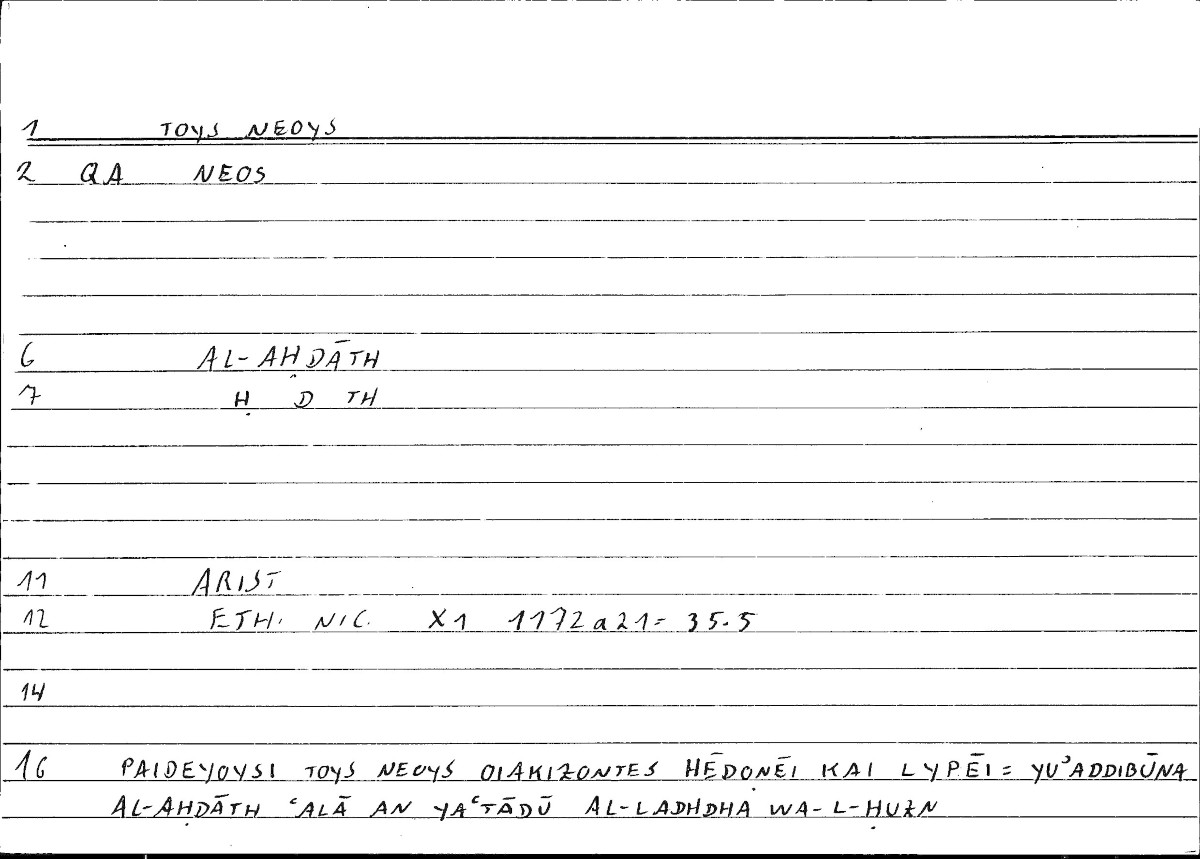 1 TOYS NEOYS
2 QA NEOS
6 AL-AḤDĀTH
7 Ḥ D TH
11 ARIST
12 ETH. NIC. X1 1172a21= 35.5
14
16 PAIDEYOYSI TOYS NEOYS OIAKIZONTES HĒDONĒI KAI LYPĒI = YUʾADDIBŪNA
AL-AḤDĀTH ʿALĀ AN YAʿTĀDŪ AL-LADHDHA WA-L-ḤUZN